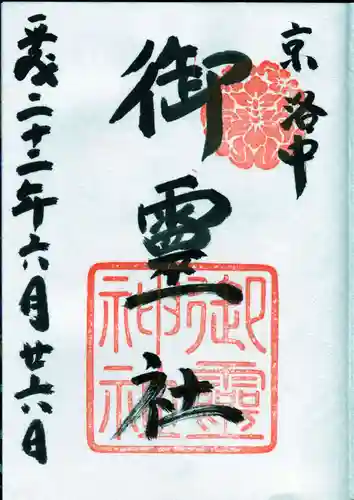 京洛中
御霊社
御霊神社
平成二十二年六月廿六日